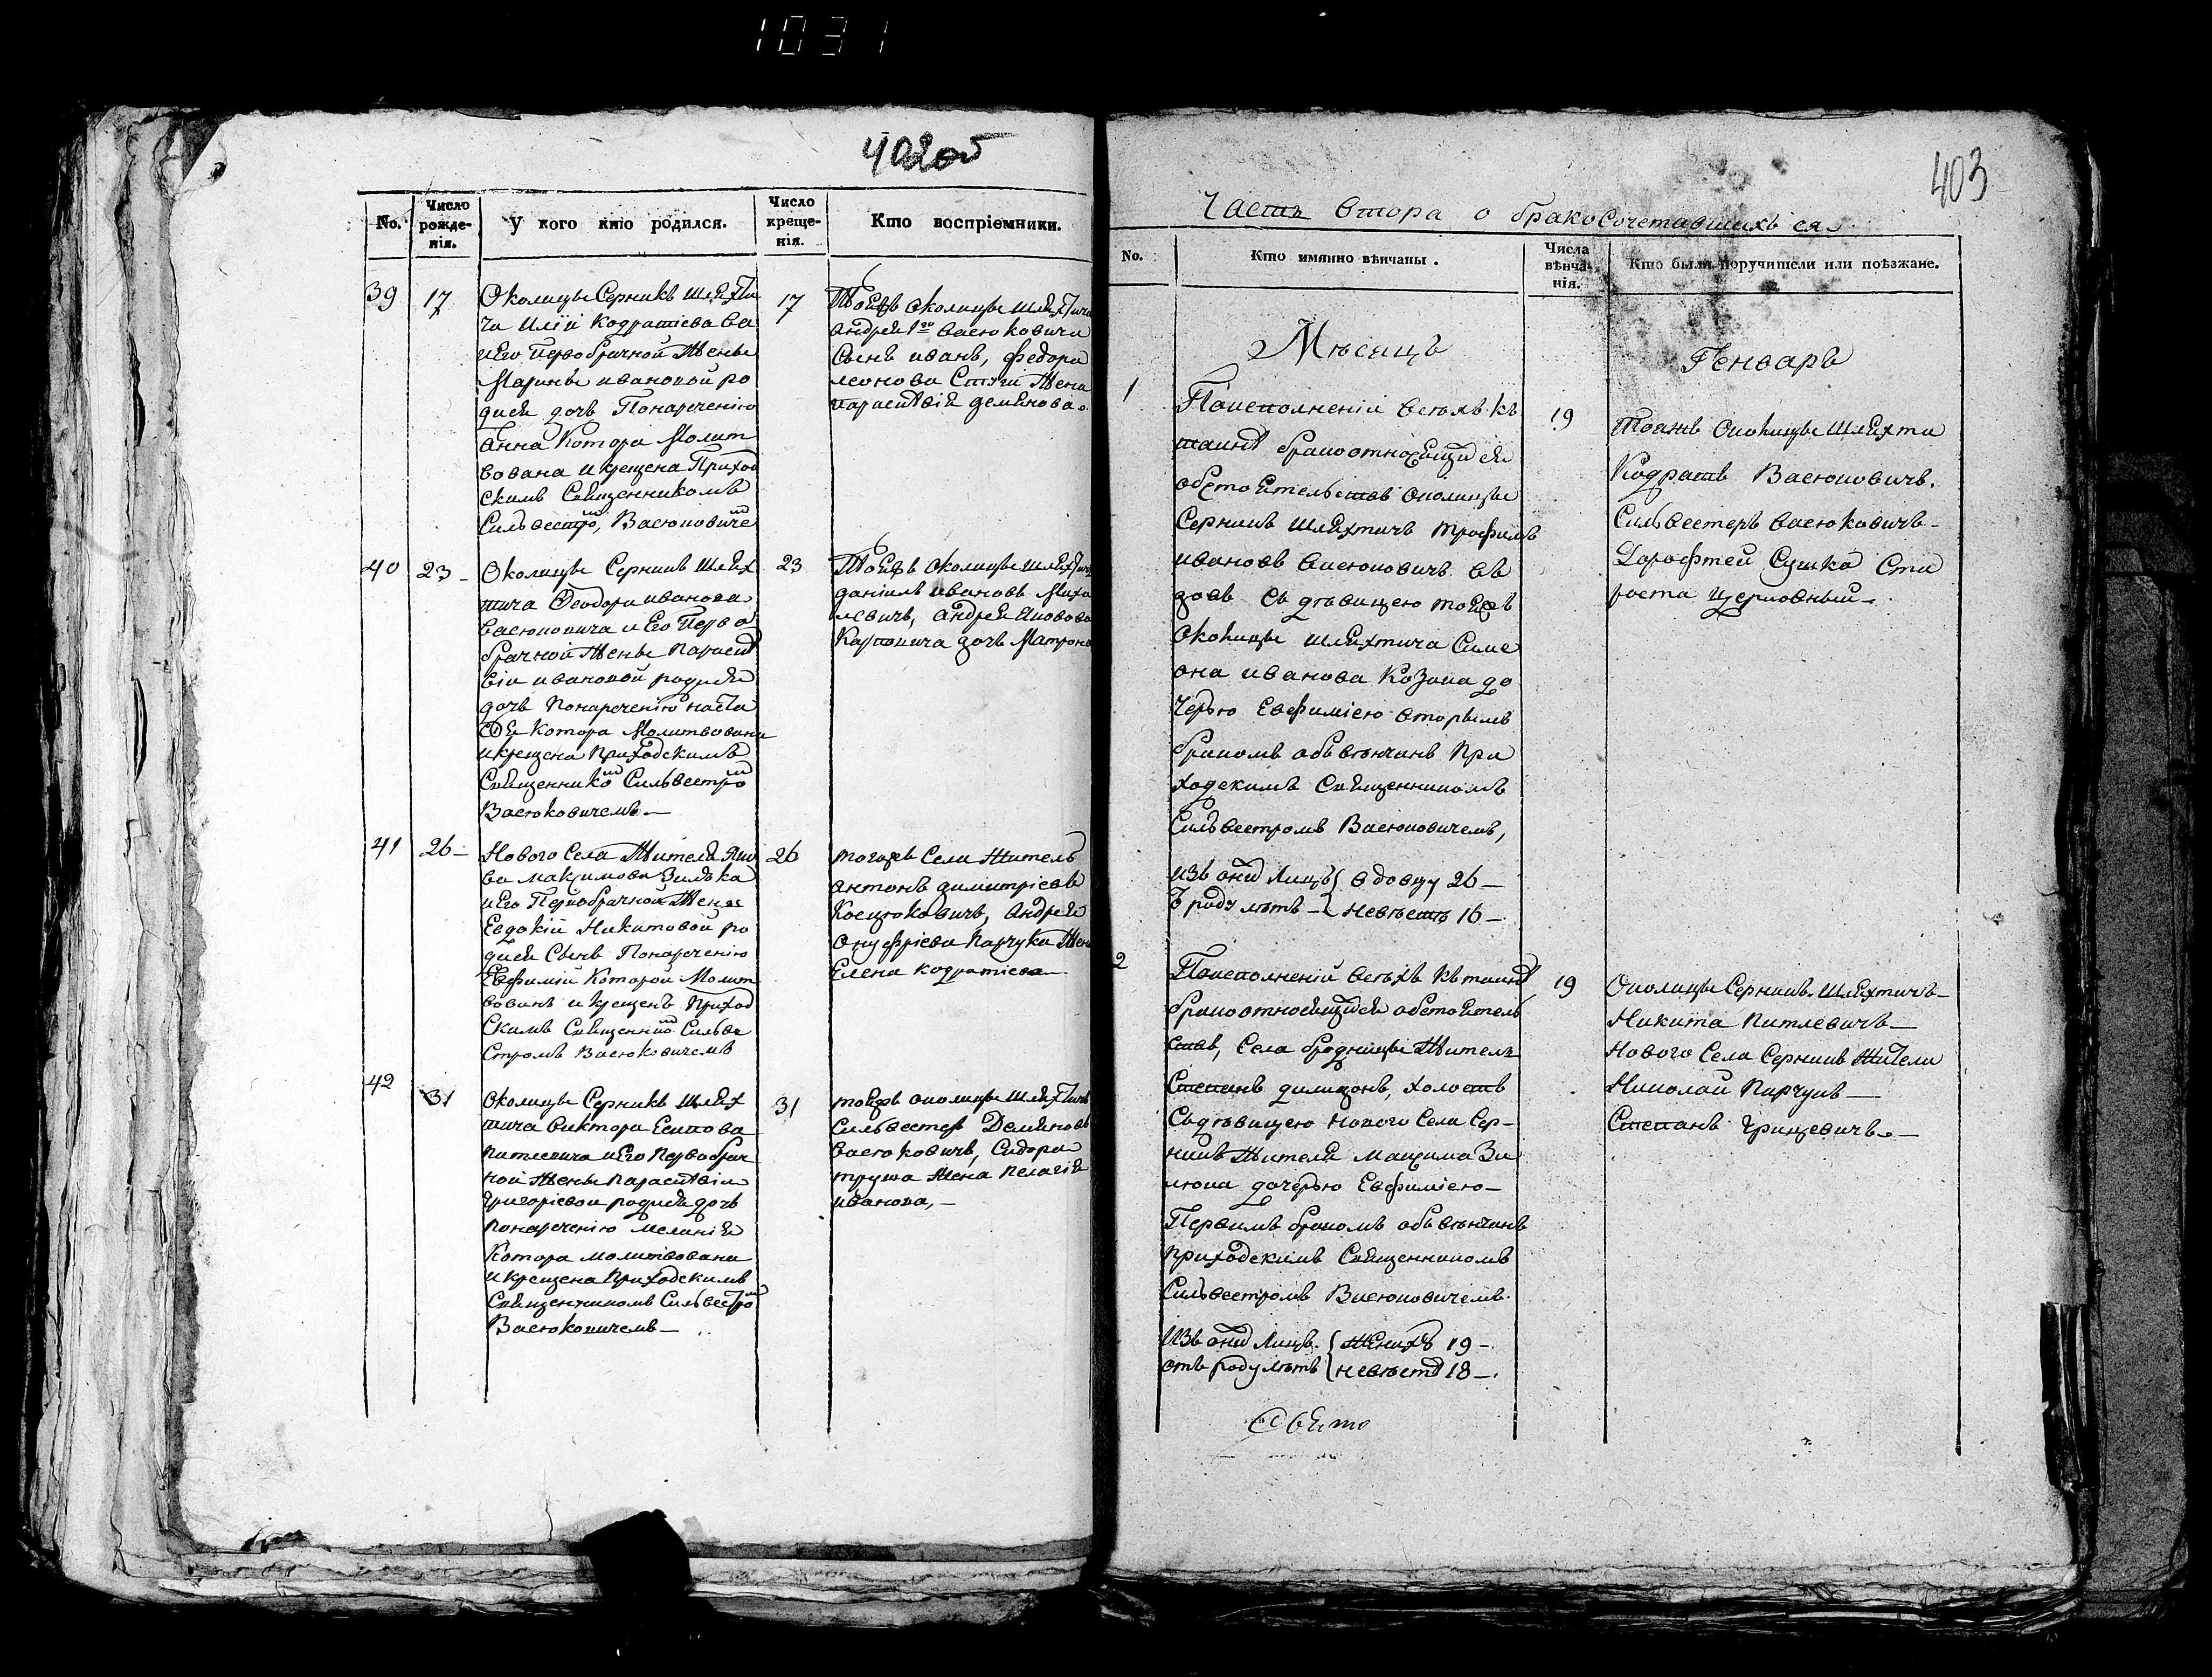 1031
402об
No.
Число рожде-нія.
У кого кто родился.
Число креще-нія.
Кто воспріемники.
39
17
Околицы Серникъ шляхти
ча Иліи Кодратіева Ва
и Его Первобрачной Жены
Марины ивановой ро
дися дочь Понареченію
Анна Котора Молит
вована и крещена Приход
скимъ Священникомъ
Сильвестро, Васюковиче
17
Тояжъ околицы шляхтича
андрея Васюковича
Сынъ иванъ, федора
леонова Жена
параскевія демянова.
40
23
Околицы Серникъ Шлях
тича Феодора иванова
Васюковича и Его Перво
брачной Жены Параске
віи ивановой родися
дочь Понареченію наста
сія Котора Молитвована
и крещена Приходскимъ
Священнико Сильвестро
Васюковичемъ.—
23
Тояжъ околицы шляхтичъ
даніилъ ивановъ Миха
левичъ, андрея
Карповича дочь Матрона
41
26
Нового Села Жителя Яко
ва максимова Зилка
и Его Первобрачной Жены
Евдокіи Никитовой ро
дися Сынъ Понареченію
Евфимій Которой Молит
вованъ и крещенъ Приход
Скимъ Священнико Сильве
Стромъ Васюковичемъ
26
тогожъ Села Житель
антонъ димитріевъ
Косцюковичъ, андрея
онуфріева Парчука Жена
Елена кодратіева—
42
31
Околицы Серникъ Шлях
тича Виктора Есипова
Питлевича и Его Первобрач
ной Жены Параскевіи
григоріевой родися дочь
понареченію меланія
Котора молитвована
и крещена Приходскимъ
Священникомъ Сильвестро
Васюковичемъ—
31
тояжъ околицы шляхтичъ
Сильвестеръ Демяновъ
Васюковичъ, Сидора
труша Жена Пелагія
иванова,—
403
Часть Втора о бракосочетавшихъ ся.
No.
Кто имянно вѣнчаны.
Числа вѣнча-нія.
Кто были поручители или поѣзжане.
Мѣсяцъ
Генварь
1
Поисполненіи всѣхъ къ
таинѣ бракоотносящи ся
обстоятельствъ околицы
Серникъ шляхтичъ трофимъ
ивановъ Васюковичъ въ
довъ съ дѣвицею тояжъ
Околицы шляхтича Симе
она иванова Козака до
черью Евфиміею вторымъ
бракомъ обвѣнчанъ при
ходскимъ Священникомъ
Сильвестромъ Васюковичемъ,
изъ онй лицъ { вдовцу 26—
роду лѣтъ— { невѣстѣ 16—
19
Тояжъ Околицы Шляхти
Кодратъ Васюковичъ.
Сильвестеръ Васюковичъ—
Дорофтей Сушко Ста
роста церковный—.
2
Поисполненіи всѣхъ къ таинѣ
бракоотносящися обстоятель
ствъ, Села бродницы Житель
Степанъ дилидонъ, холостъ
Съ дѣвицею нового Села Сер-
никъ Жителя Максима Зи
люка дочерью Евфиміею—
Первимъ бракомъ обвѣнчанъ
приходскимъ Священникомъ
Сильвестромъ Васюковичемъ.
Изъ онй Лицъ { Женихъ 19—
отъ роду лѣтъ { невѣстѣ 18—.
19
Околицы Серникъ Шляхтичъ—
Никита Питлевичъ—
Нового Села Серникъ Жители
Николай Парчукъ—
Степанъ Грицевичъ.—